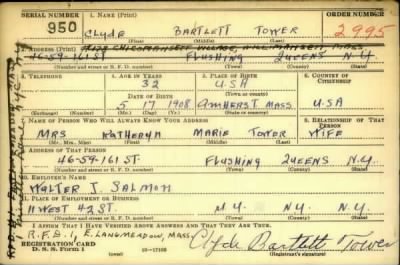 SERIAL NUMBER 1. NAME (Print) ORDER NUMBER
950 CLYDE BARTLETT TOWER 2995
(First) (Middle) (Last)
2. ADDRESS (Print)
46-59-161 ST FLUSHING QUEENS N.Y.
(Number and street or R. F. D. number) (Town) (County) (State)
3. TELEPHONE 4. AGE IN YEARS 5. PLACE OF BIRTH 6. COUNTRY OF CITIZENSHIP
32 USA
DATE OF BIRTH
5 17 1908 AMHERST MASS USA
(Exchange) (Number) (Mo.) (Day) (Yr.) (State or country)
7. NAME OF PERSON WHO WILL ALWAYS KNOW YOUR ADDRESS 8. RELATIONSHIP OF THAT PERSON
MRS KATHERYN MARIE TOWER WIFE
(Mr., Mrs., Miss) (First) (Middle) (Last)
9. ADDRESS OF THAT PERSON
46-59-161 ST. FLUSHING QUEENS N.Y.
(Number and street or R. F. D. number) (Town) (County) (State)
10. EMPLOYER'S NAME
WALTER J. SALMON
11. PLACE OF EMPLOYMENT OR BUSINESS
11 WEST 42 ST. N.Y. N.Y. N.Y.
(Number and street or R. F. D. number) (Town) (County) (State)
I AFFIRM THAT I HAVE VERIFIED ABOVE ANSWERS AND THAT THEY ARE TRUE.
R.F.D. 1, E. LANGMEADOW, MASS. Clyde Bartlett Tower
REGISTRATION CARD
D. S. S. Form 1 (over) (Registrant's signature)